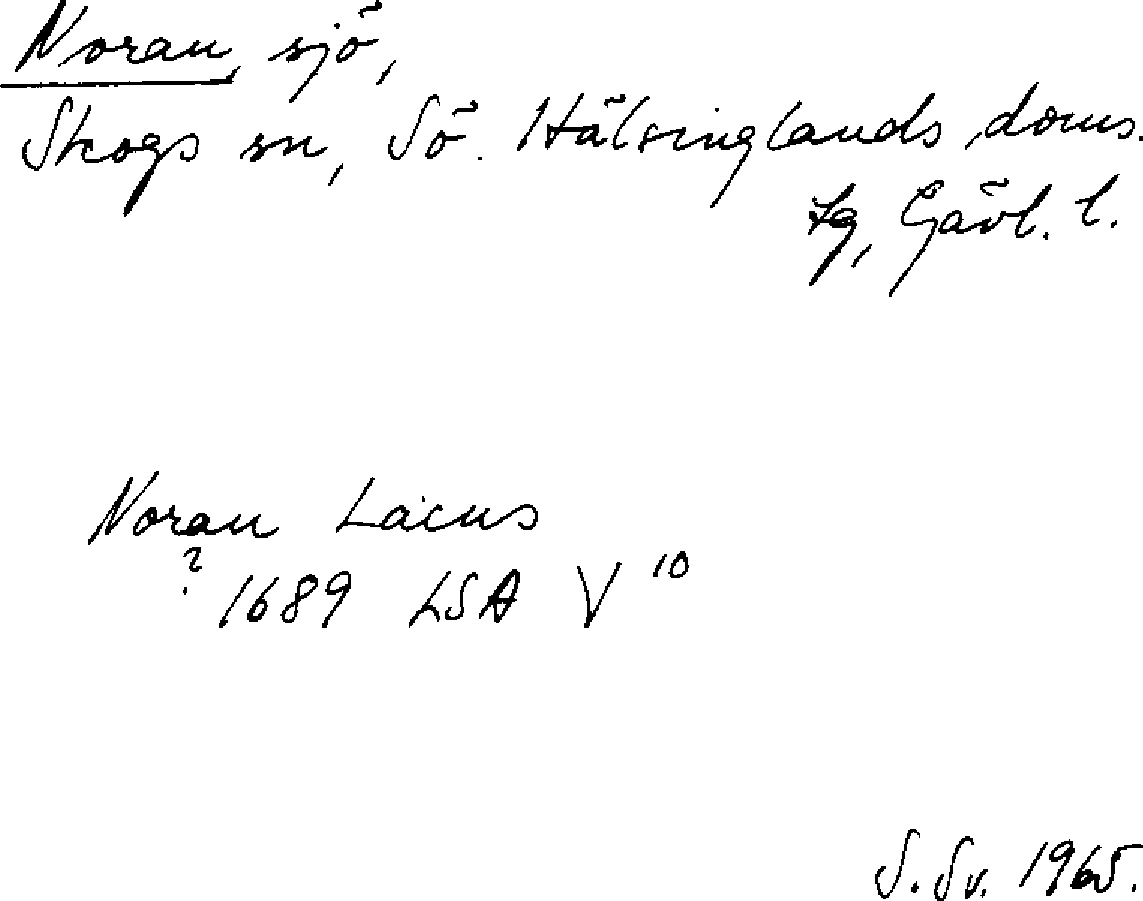 Noran, sjö,
Skogs sn, Sö. Hälsinglands doms.
tg, Gävl. l.
Noran Lacus
? 1689 LSA V 10
S. Sv. 1965.